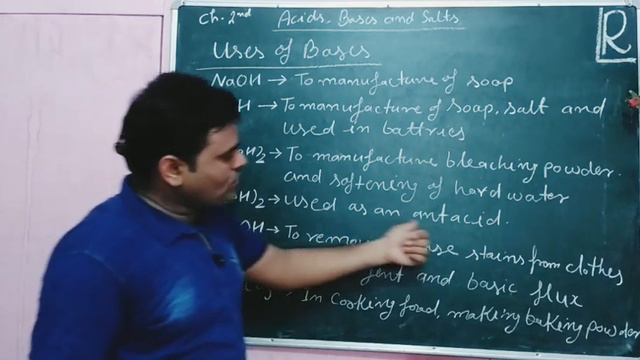 Ch. 2nd Acids, Bases and Salts R
Uses of Bases
NaOH → To manufacture of soap
H → To manufacture of soap, salt and
used in battries
H)2 → To manufacture bleaching powder.
and softening of hard water
H)2 → used as an antacid.
OH → To stains from clothes
and basic flux
In cooking food, making baking powder